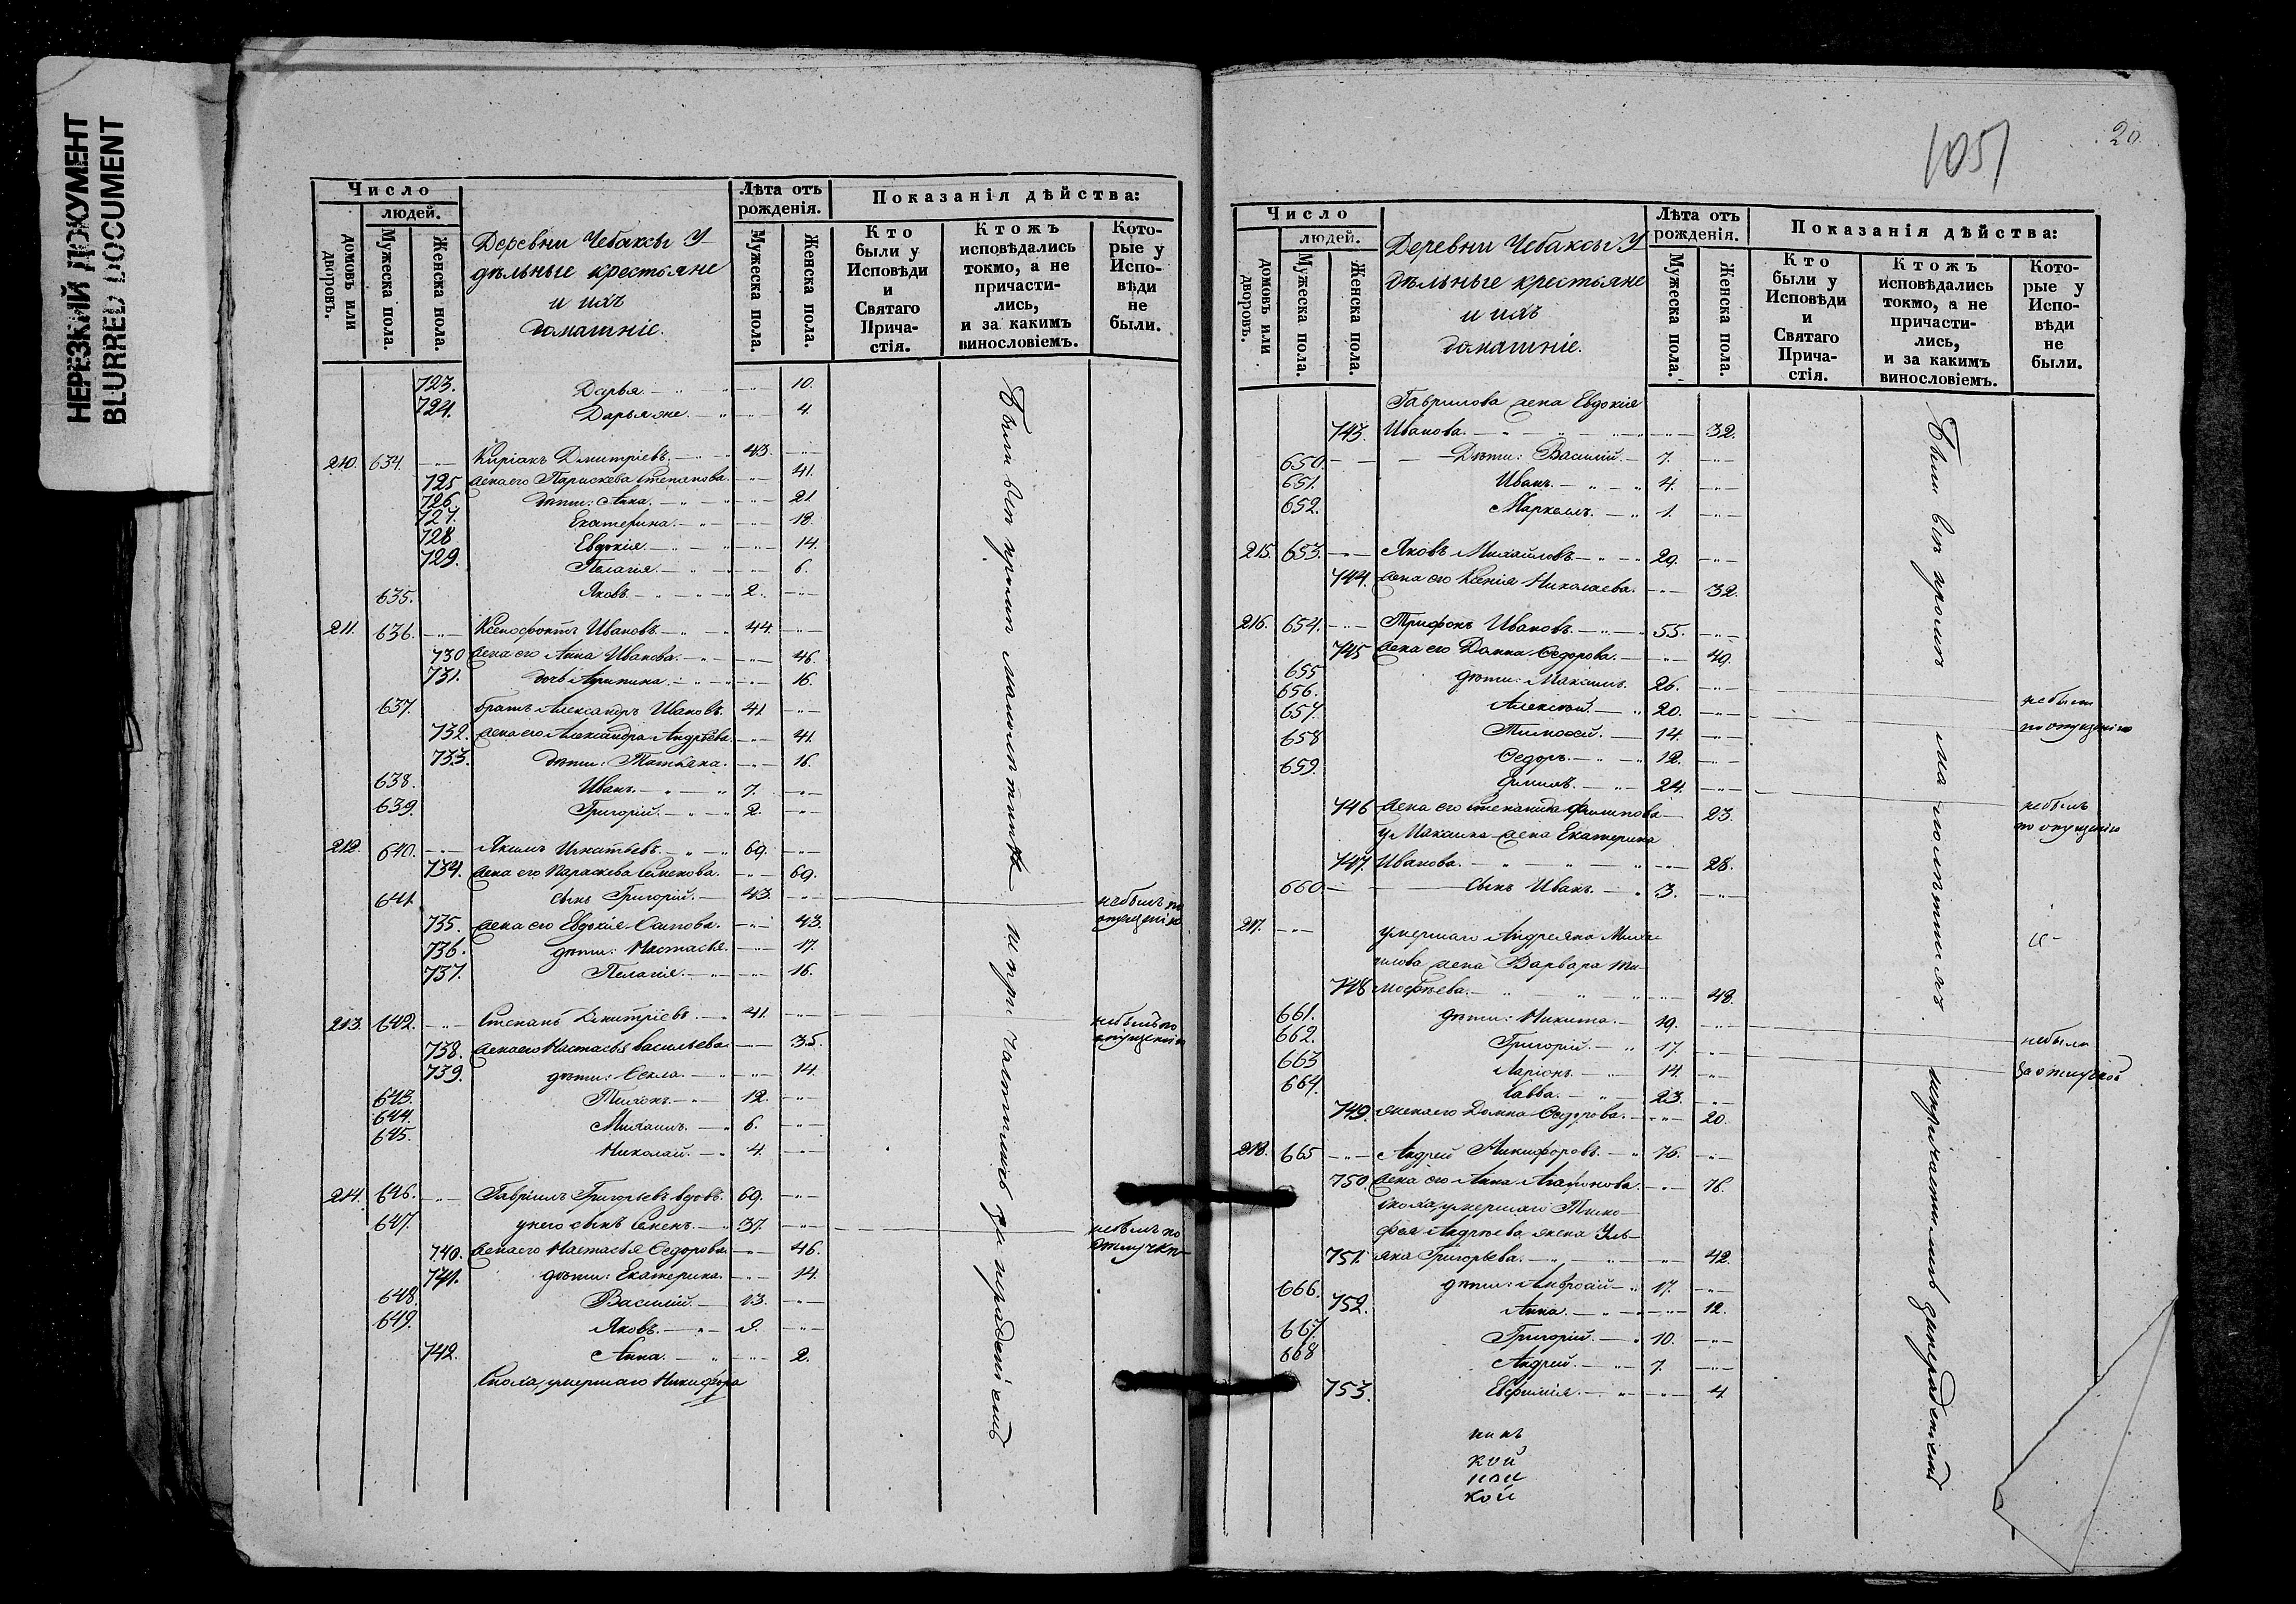 НЕРЕЗКИЙ ДОКУМЕНТ
BLURRED DOCUMENT
Число
людей.
домовъ или дворовъ.
Мужеска пола.
Женска пола.
Деревни Чебаксы У-
дѣльные крестьяне
и ихъ
домашніе.
Лѣта отъ рожденія.
Мужеска пола.
Женска пола.
Показанія дѣйства:
Кто были у Исповѣди и Святаго Причастія.
Ктожъ исповѣдались токмо, а не причасти-лись, и за какимъ винословіемъ.
Кото-рые у Испо-вѣди не были.
723. Дарья. 10.
724. Дарья же. 4.
210. 634. Киріакъ Дмитріевъ. 43.
725 жена его Параскева Степанова. 41.
726. дѣти: Анна. 21
727. Екатерина. 18.
728 Евдокія. 14.
729. Пелагія. 6.
635. Яковъ. 2.
211. 636. Ксенофонтъ Ивановъ. 44.
730 жена его Анна Иванова. 46.
731. дочь Агрипина. 16.
637. братъ Александръ Ивановъ. 41.
732. жена его Александра Андрѣева. 41.
733. дѣти: Татьяна. 16.
638. Иванъ. 7.
639. Григорій. 2.
212. 640. Якимъ Игнатьевъ. 69.
734. жена его Параскева Семенова. 69.
641. сынъ Григорій. 43. небылъ по опущенію
735. жена его Евдокія Осипова. 43.
736. дѣти: Настасья. 17.
737. Пелагія. 16.
213. 642. Степанъ Дмитріевъ. 41. небылъ по опущенію
738. жена его Настасья Васильева 35.
739. дѣти: Ѳекла. 14.
643. Тихонъ. 12.
644. Михаилъ. 6.
645. Николай. 4.
214. 646. Гавріилъ Григорьевъ вдовъ. 69.
647. у него сынъ Семенъ. 37. небылъ по отлучкѣ
740. жена его Настасья Ѳедорова 46.
741. дѣти: Екатерина. 14.
648. Василій. 13.
649. Яковъ. 9.
742. Анна. 2.
Сноха, умершаго Никифора
Были всѣ кромѣ малолѣтнихъ
1051
20
Число
людей.
домовъ или дворовъ.
Мужеска пола.
Женска пола.
Деревни Чебаксы У
дѣльные крестьяне
и ихъ
домашніе.
Лѣта отъ рожденія.
Мужеска пола.
Женска пола.
Показанія дѣйства:
Кто были у Исповѣди и Святаго Прича-стія.
Ктожъ исповѣдались токмо, а не причасти-лись, и за какимъ винословіемъ.
Кото-рые у Испо-вѣди не были.
Гаврилова жена Евдокія
743. Иванова. 32.
650. Дѣти: Василій. 7.
651. Иванъ. 4.
652. Маркелъ. 1.
215. 653. Яковъ Михайловъ. 29.
744. жена его Ксенія Николаева. 32.
216. 654. Трифонъ Ивановъ. 55.
745 жена его Домна Ѳедорова. 49.
655 дѣти: Максимъ. 26. небыли
656. Алексѣй. 20. по опущенію
657. Тимоѳей. 14.
658 Ѳедоръ. 12.
659. Филипъ. 24. небылъ
746 жена его Степанида Филипова 23. по опущенію
у Максима жена Екатерина
747. Иванова. 28.
660 сынъ Иванъ. 3.
217. умершаго Андреяна Миха-
илова жена Варвара Ти-
748 моѳѣева. 48.
661. дѣти: Никита. 19. небыли
662. Григорій. 17. за отлучкой
663 Ларіонъ. 14.
664. Савва. 23.
749. жена его Домна Ѳедорова. 20.
218. 665 Андрей Никифоровъ. 76.
750. жена его Анна Агафонова. 76.
сноха, умершаго Тимо-
фея Андрѣева жена Уль-
751. яна Григорьева. 42.
666. дѣти: Амвросій 17.
752. Анна. 12.
667. Григорій. 10.
668 Андрей. 7.
753. Евфимія. 4
Были всѣ кромѣ малолѣтнихъ
кой
кой